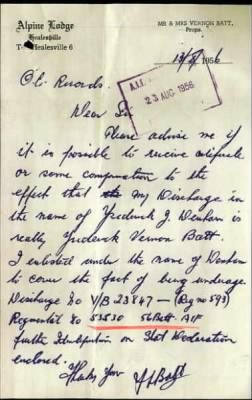 Alpine Lodge
Healesville
Healesville 6
MR & MRS VERNON BATT,
Props.
1956
O/c Records.
A.I.F.
23 AUG 1956
Dear Sir
Please advise me if
it is possible to receive certificate
or some compensation to the
effect that my Discharge in
the name of Frederick J. Wenham is
really Frederick Vernon Batt.
I enlisted under the name of Wenham
to cover the fact of being underage.
Discharge No V/B 23847 — (Reg no 593)
Regimental No 53530 56 Batt. AIF
further on Stat Declaration
enclosed.
Thanks You
Batt